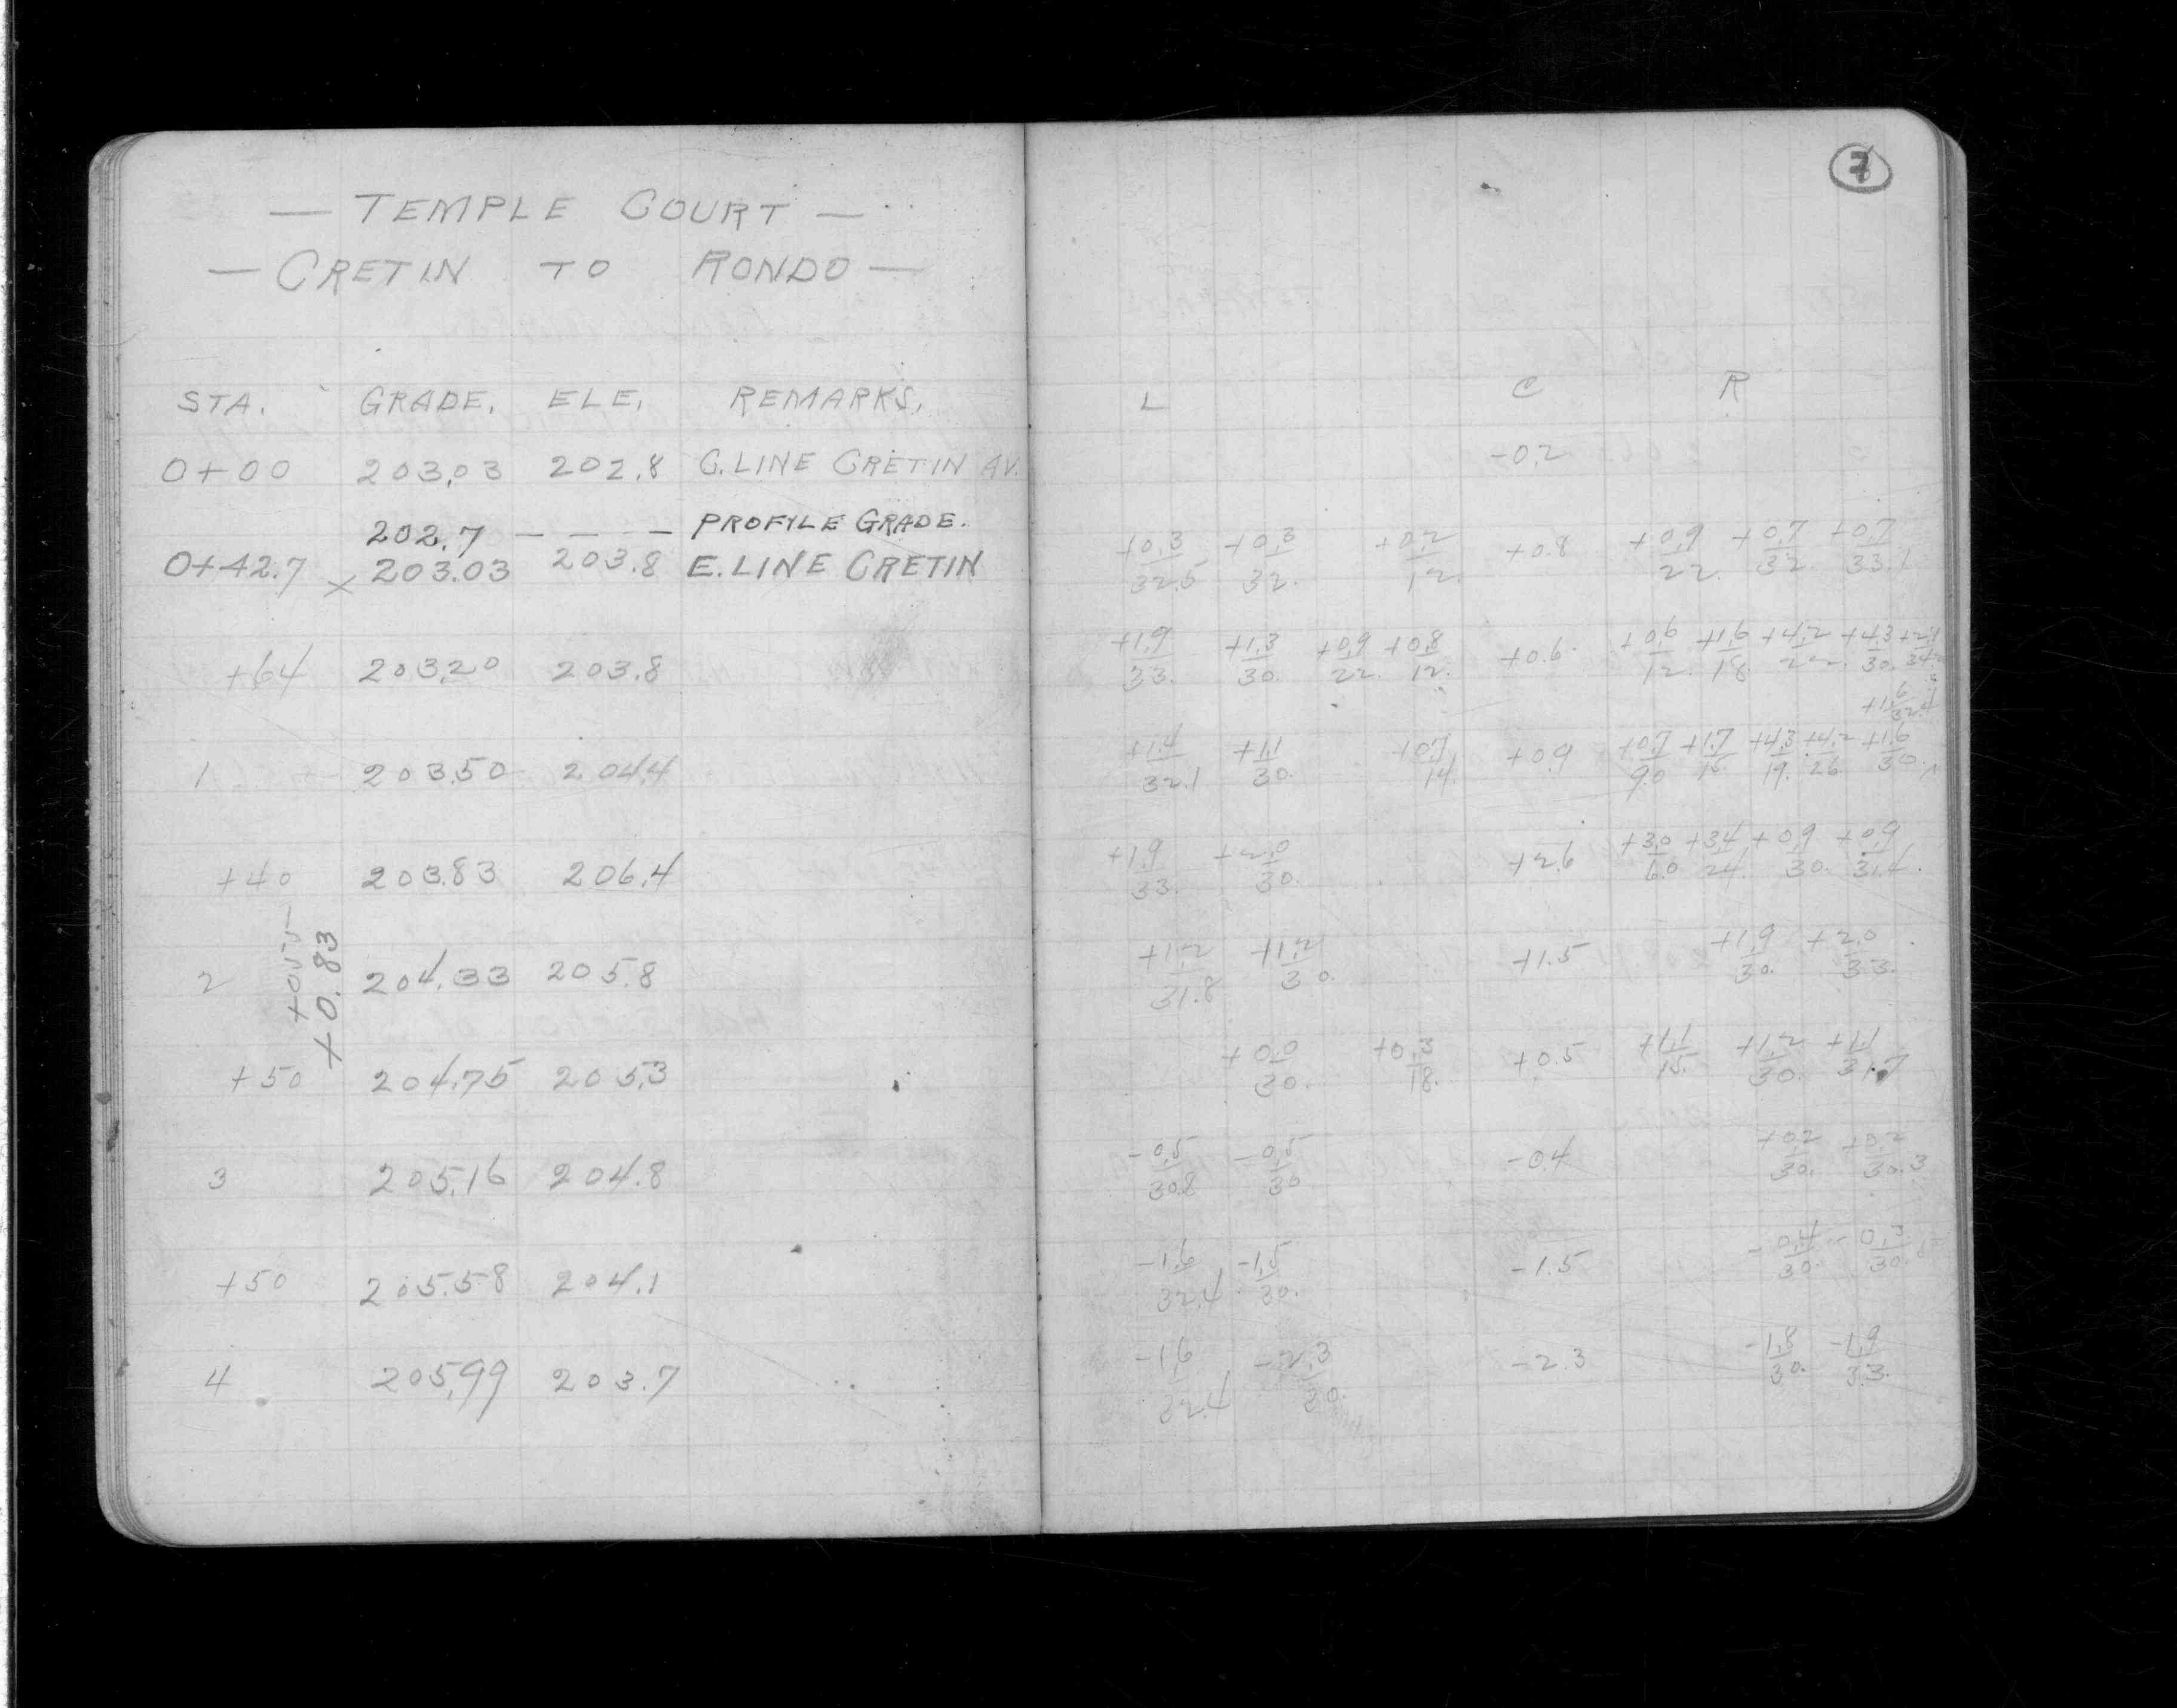 — TEMPLE COURT —
— CRETIN TO RONDO —
STA. GRADE. ELE. REMARKS.
0+00 203.03 202.8 C. LINE CRETIN AV.
202.7 — — — PROFILE GRADE.
0+42.7 x 203.03 203.8 E. LINE CRETIN
+64 203.20 203.8
1 203.50 204.4
+40 203.83 206.4
+0.83
2 204.33 205.8
+50 204.75 205.3
3 205.16 204.8
+50 205.58 204.1
4 205.99 203.7
7
L C R
-0.2
+0.3 +0.3 +0.2 +0.8 +0.9 +0.7 +0.7
32.5 32. 12. 22. 32. 33.1
+1.9 +1.3 +0.9 +0.8 +0.6 +0.6 +1.6 +4.2 +4.3
33. 30. 22. 12. 12. 18. 22. 30.
+1.6
32.4
+1.4 +1.1 +0.7 +0.9 +0.7 +1.7 +4.3 +4.2 +1.6
32.1 30. 14. 9.0 15. 19. 26. 30.
+1.9 +2.0 +2.6 +3.0 +3.4 +0.9 +0.9
33. 30. 6.0 24. 30. 31.4
+1.2 +1.2 +1.5 +1.9 +2.0
31.8 30. 30. 33.
+0.0 +0.3 +0.5 +1.1 +1.2 +1.1
30. 18. 15. 30. 31.7
-0.5 -0.5 -0.4 +0.2 +0.2
30.8 30 30. 30.3
-1.6 -1.5 -1.5 -0.4 -0.3
32.4 30. 30. 30.
-1.6 -2.3 -2.3 -1.8 -1.9
32.4 30. 30. 33.